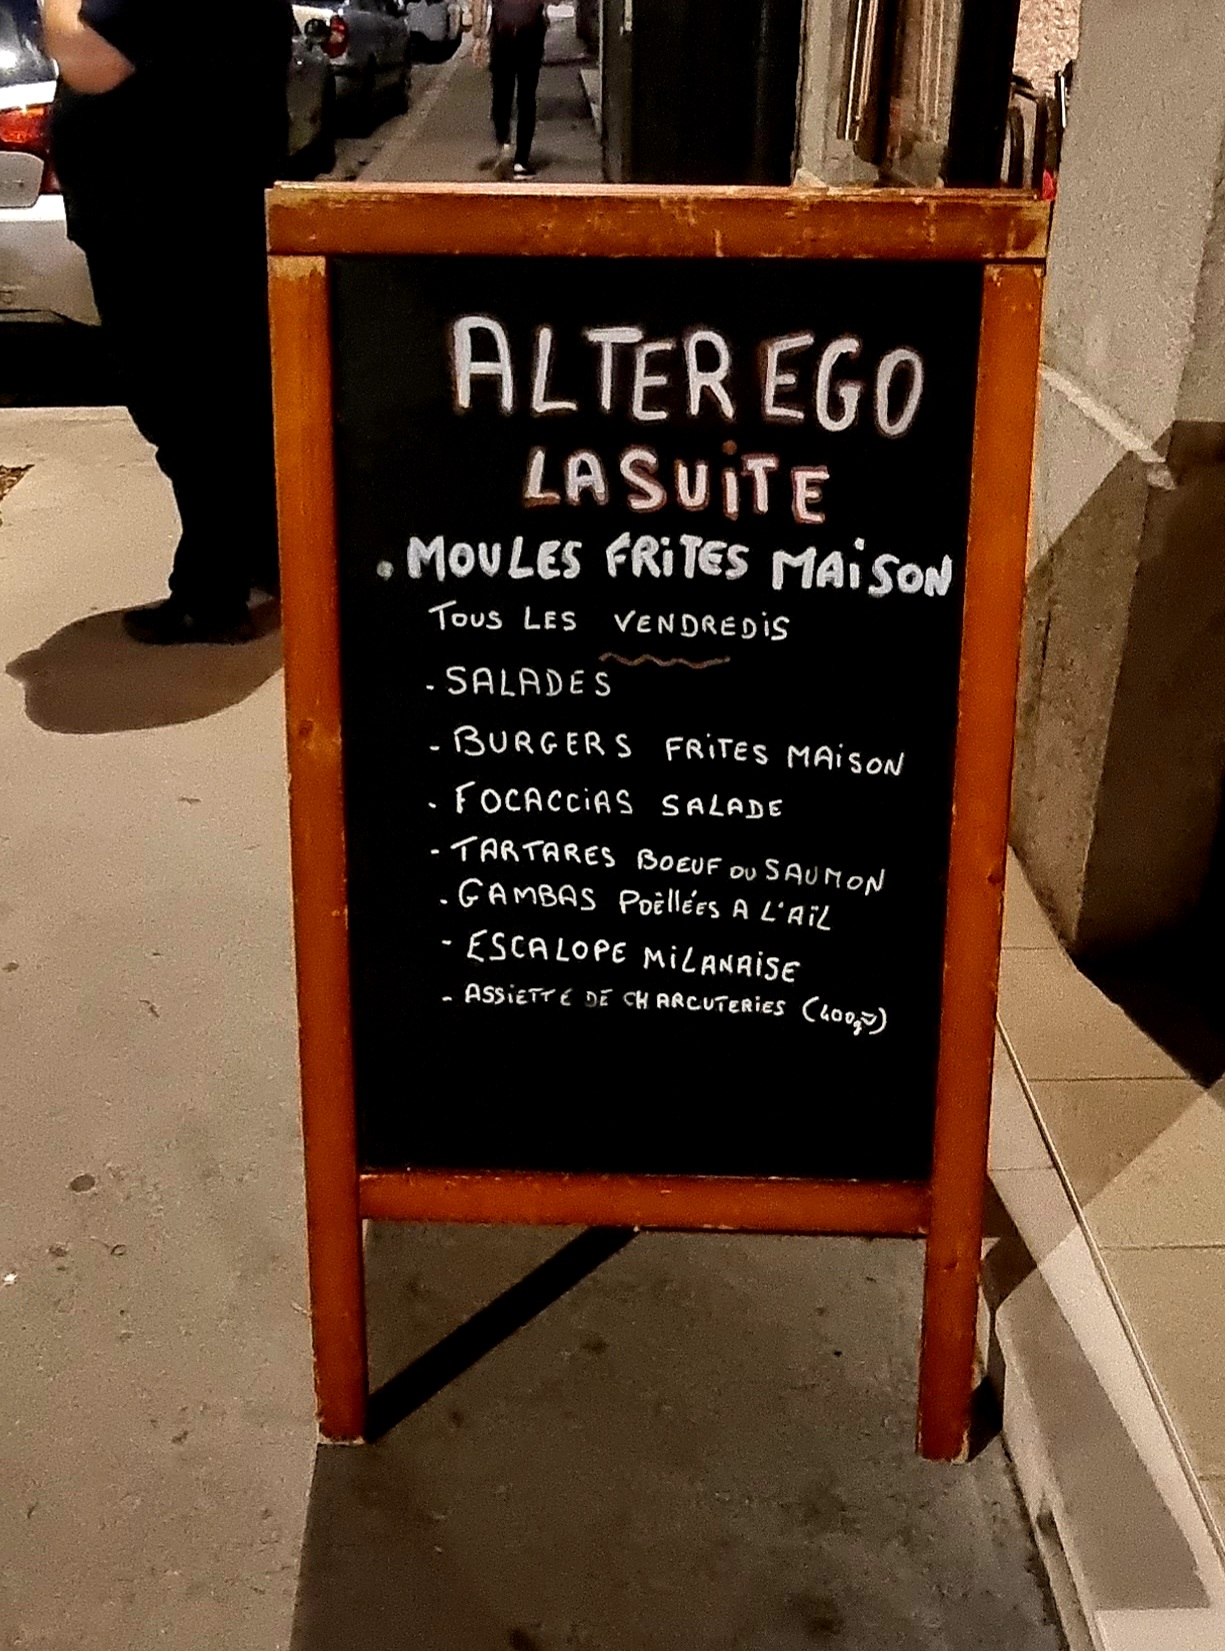 ALTER EGO
LA SUiTE
. MOULES FRiTES MAiSON
TOUS LES VENDREDiS
- SALADES
- BURGERS FRiTES MAiSON
- FOCACCiAS SALADE
- TARTARES BOEUF OU SAUMON
- GAMBAS POËllÉES A L'AïL
- ESCALOPE MiLANAISE
- ASSiETTE DE CHARCUTERiES (400g)